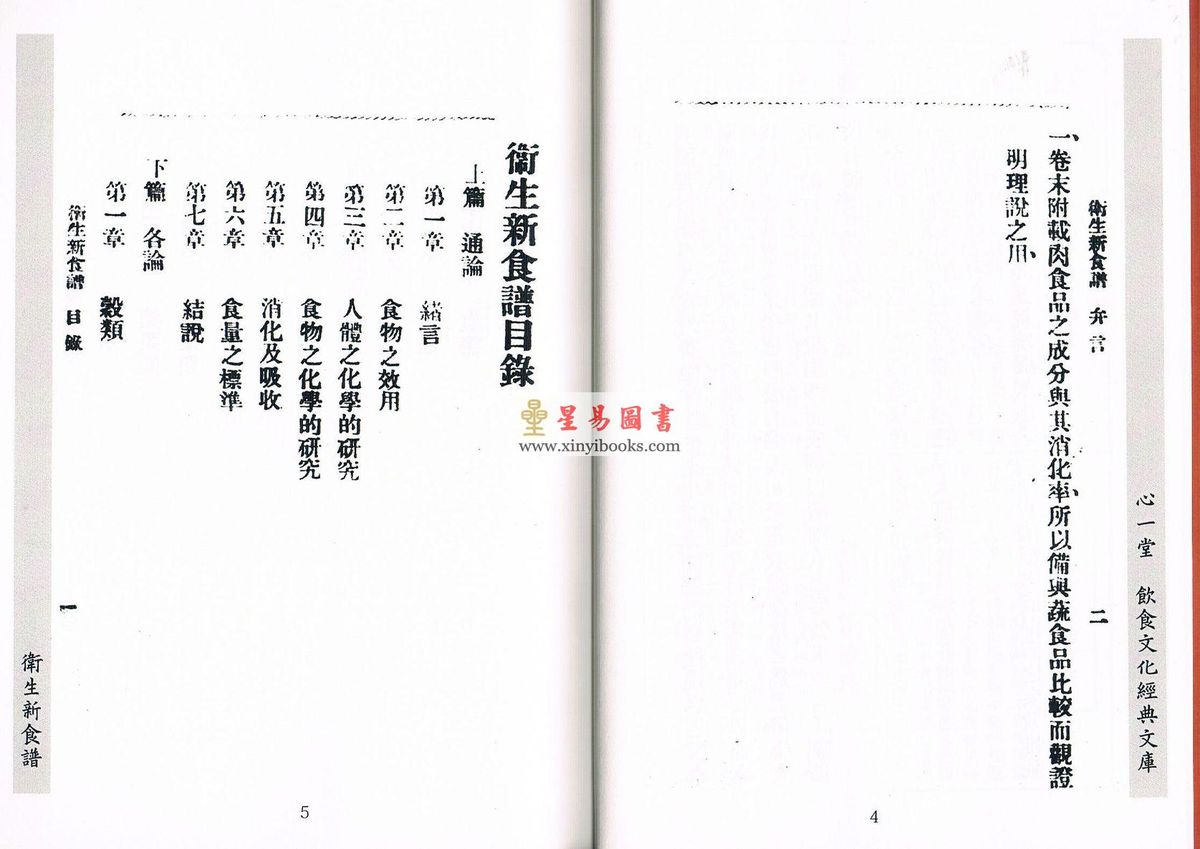 心一堂 飲食文化經典文庫
衛生新食譜 弁言 二
一、卷末附載肉食品之成分與其消化率、所以備與蔬食品比較而觀證
明理說之用、
4
衛生新食譜目錄
上篇 通論
第一章 緒言
第二章 食物之效用
第三章 人體之化學的研究
第四章 食物之化學的研究
第五章 消化及吸收
第六章 食量之標準
第七章 結說
下篇 各論
第一章 穀類
衛生新食譜 目錄 一
衛生新食譜
5
星易圖書
www.xinyibooks.com